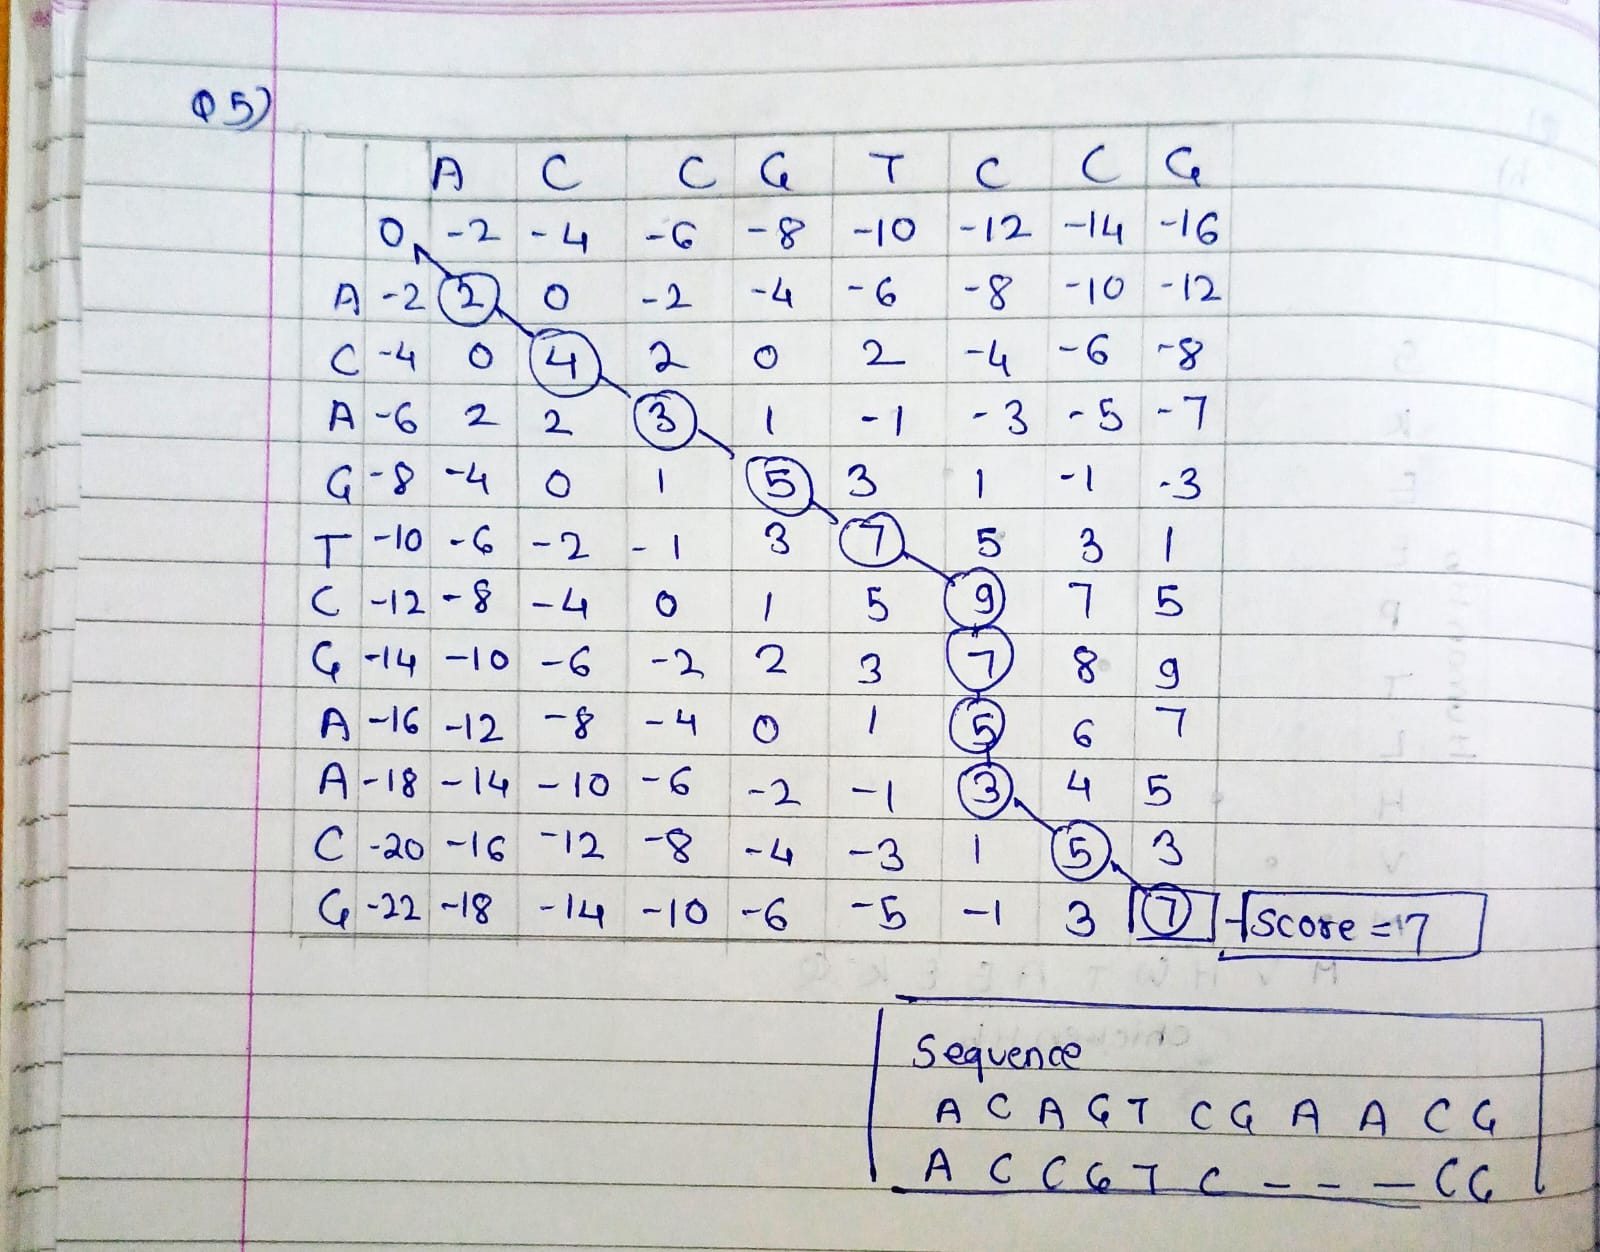 Q5)
A C C G T C C G
0 -2 -4 -6 -8 -10 -12 -14 -16
A -2 2 0 -2 -4 -6 -8 -10 -12
C -4 0 4 2 0 2 -4 -6 -8
A -6 2 2 3 1 -1 -3 -5 -7
G -8 -4 0 1 5 3 1 -1 -3
T -10 -6 -2 -1 3 7 5 3 1
C -12 -8 -4 0 1 5 9 7 5
G -14 -10 -6 -2 2 3 7 8 9
A -16 -12 -8 -4 0 1 5 6 7
A -18 -14 -10 -6 -2 -1 3 4 5
C -20 -16 -12 -8 -4 -3 1 5 3
G -22 -18 -14 -10 -6 -5 -1 3 7 Score = 7
Sequence
A C A G T C G A A C G
A C C G T C - - - C G